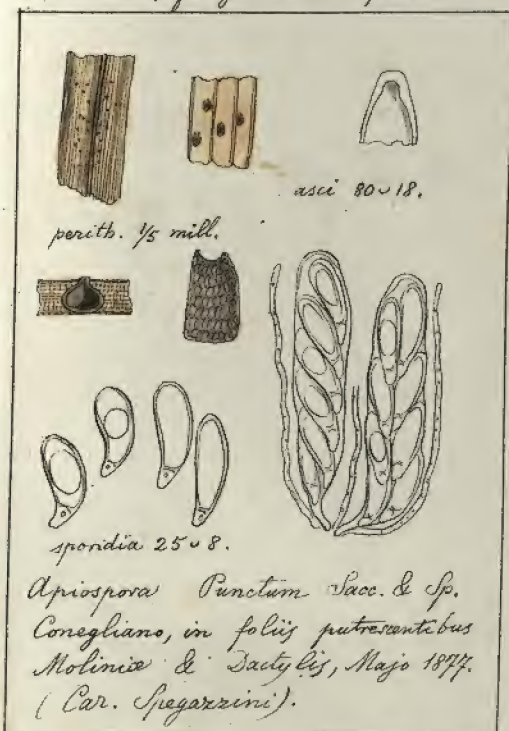 asci 80 ⌣ 18.
perith. 1/5 mill.
sporidia 25 ⌣ 8.
Apiospora Punctum Sacc. & Sp.
Conegliano, in foliis putrescentibus
Moliniæ & Dactylis, Majo 1877.
(Car. Spegazzini).